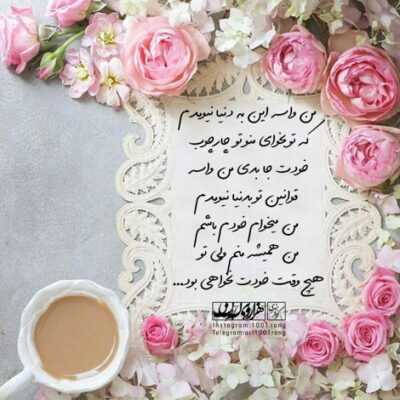 من واسه این به دنیا نیومدم
که تو بخوای منو تو چارچوب
خودت جا بدی من واسه
قوانین تو بدنیا نیومدم
من میخوام خودم باشم
من همیشه منم ولی تو
هیچ وقت خودت نخواهی بود...
Instagram:1001rang